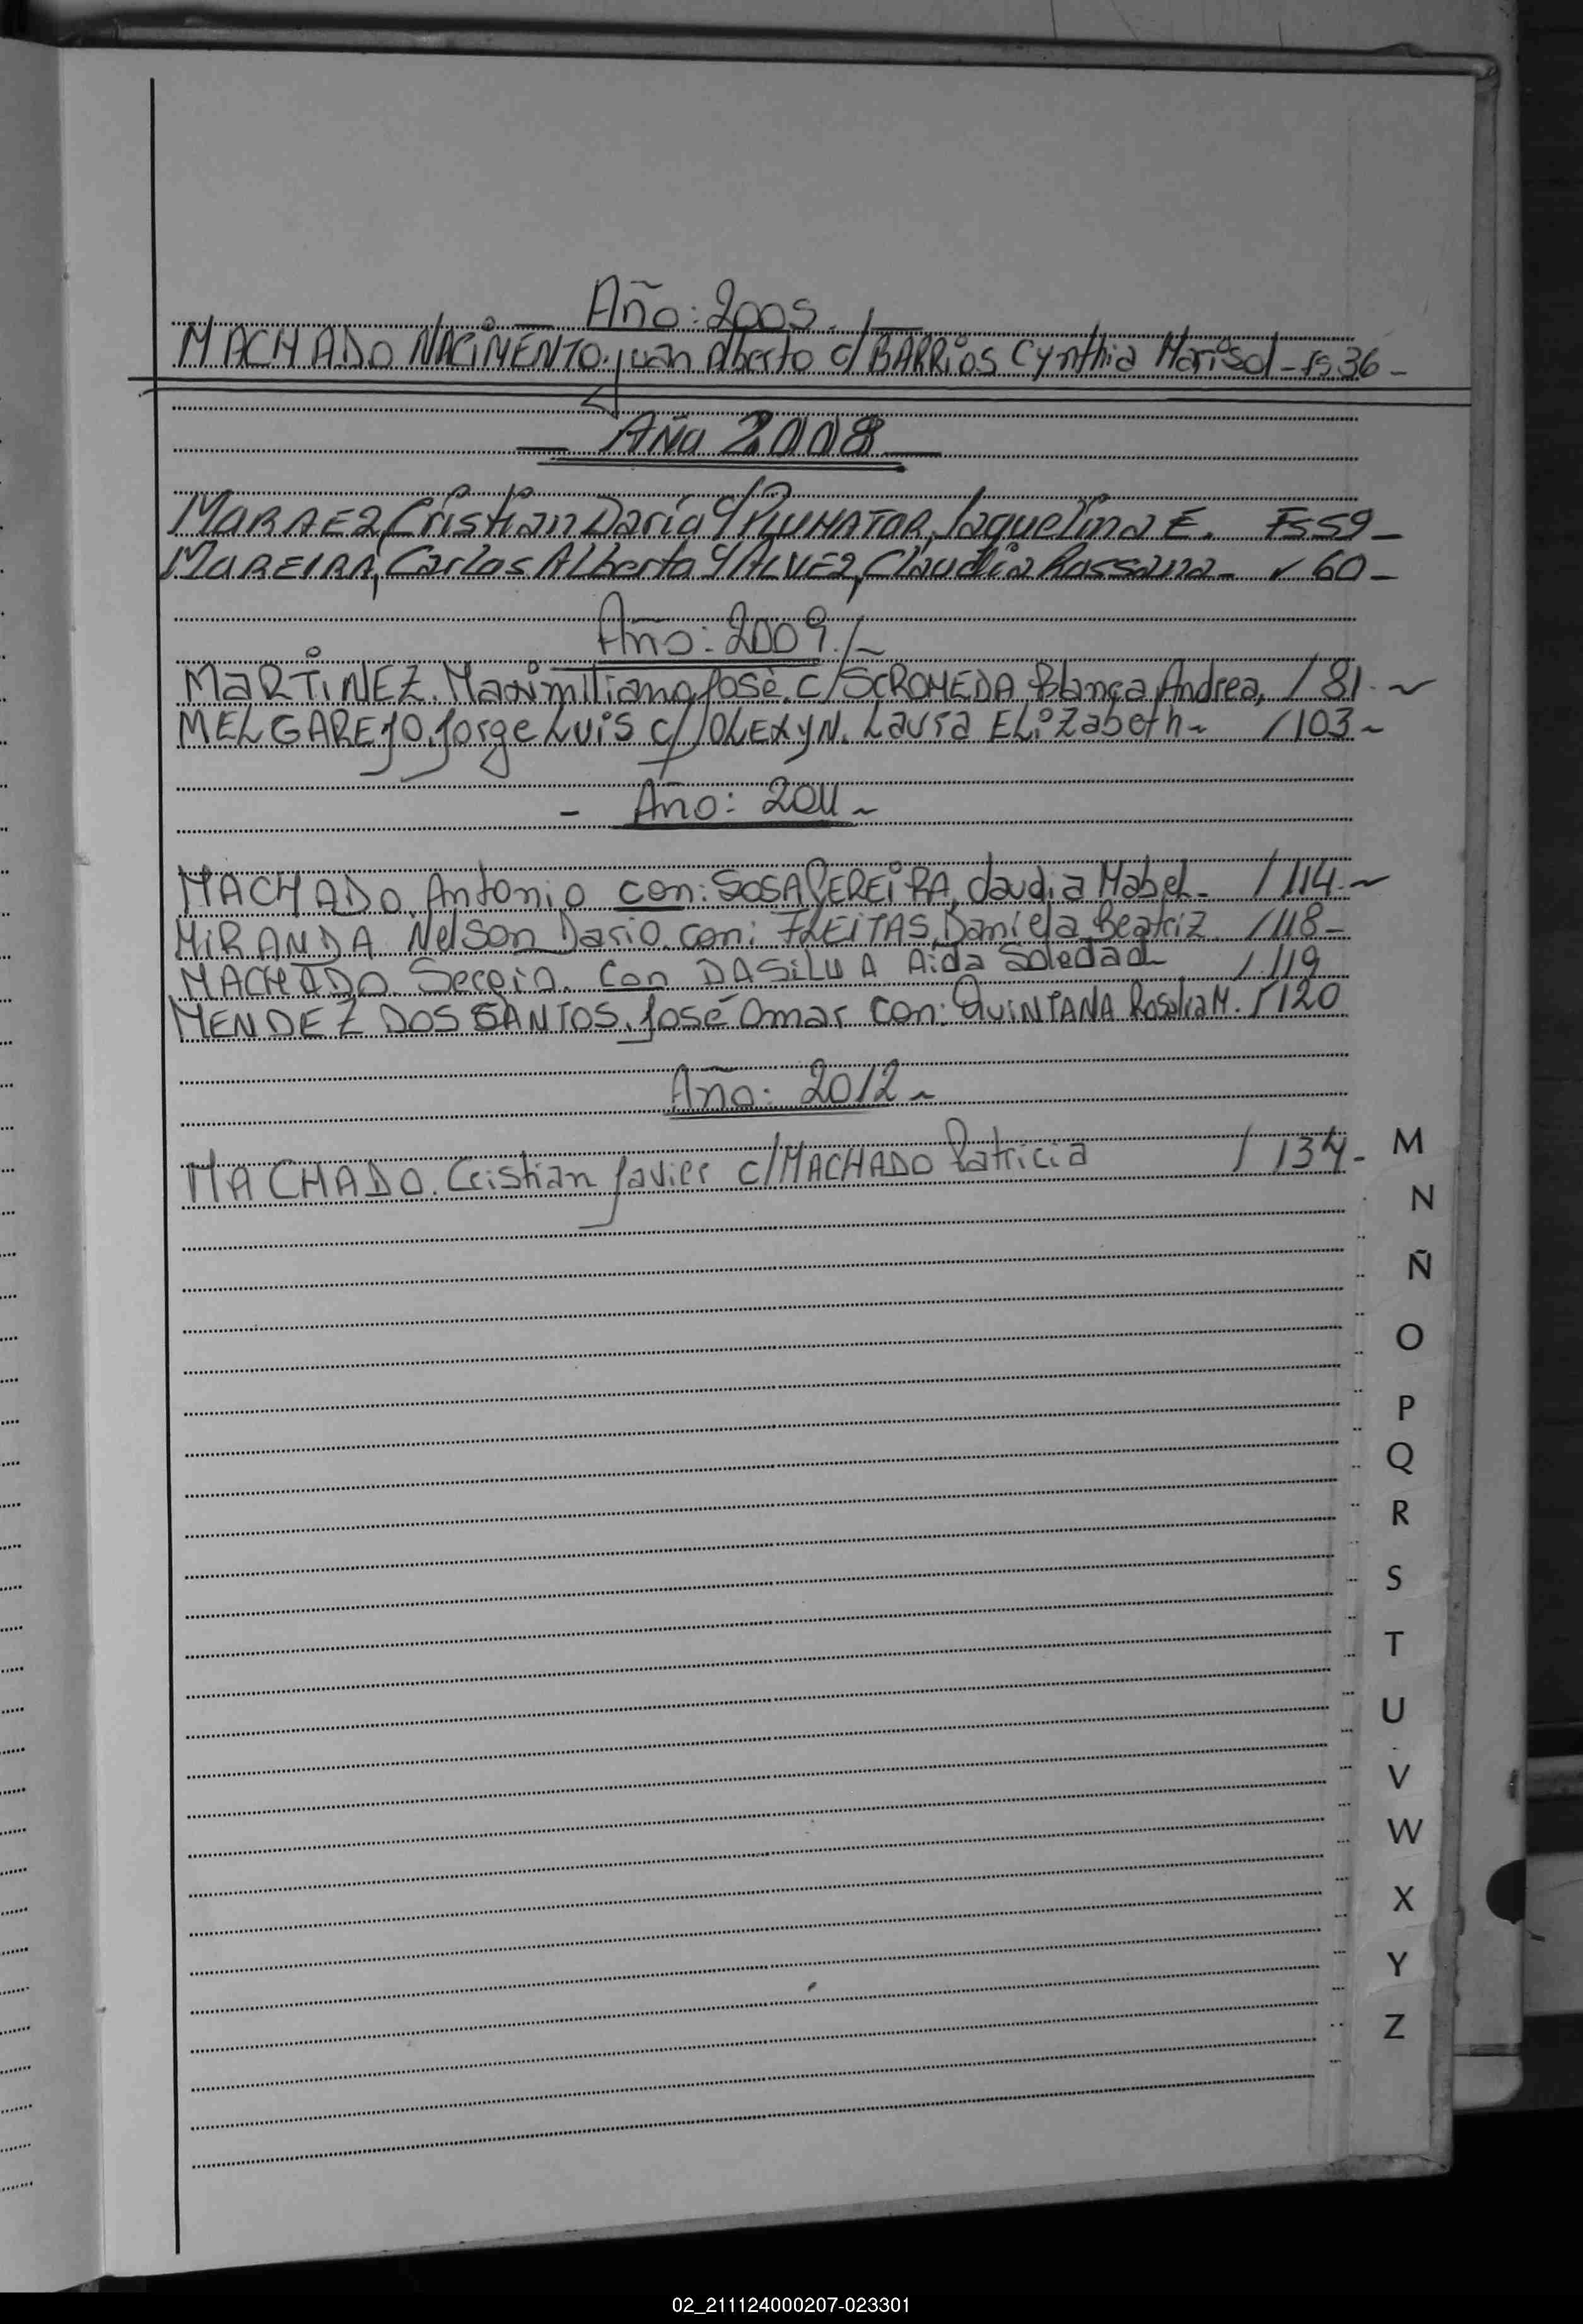 Año: 2005.
MACHADO NACIMENTO. Juan Alberto c/ BARRIOS Cynthia Marisol - Fs. 36 -
— Año 2008 —
MORAEZ, Cristian Dario c/ PLUHATOR, Jaquelina E. Fs 59 -
MOREIRA, Carlos Alberto c/ ALVEZ, Claudia Rossana - 60 -
Año: 2009./~
MARTINEZ. Maximiliano José. c/ SCROMEDA Blanca Andrea, / 81. ~
MELGAREJO. Jorge Luis c/ OLEXYN. Laura Elizabeth ~ / 103 ~
- Año: 2011 ~
MACHADO. Antonio con: SOSA PEREIRA, Claudia Mabel - / 114. ~
MIRANDA Nelson Dario. con: FREITAS, Daniela Beatriz. / 118 -
MACHADO. Sergio. con DASILVA Aida Soledad / 119
MENDEZ DOS SANTOS. José Omar con: QUINTANA Rosalia M. / 120
Año: 2012 ~
MACHADO. Cristian Javier c/ MACHADO Patricia / 134 -
M
N
Ñ
O
P
Q
R
S
T
U
V
W
X
Y
Z
02_211124000207-023301